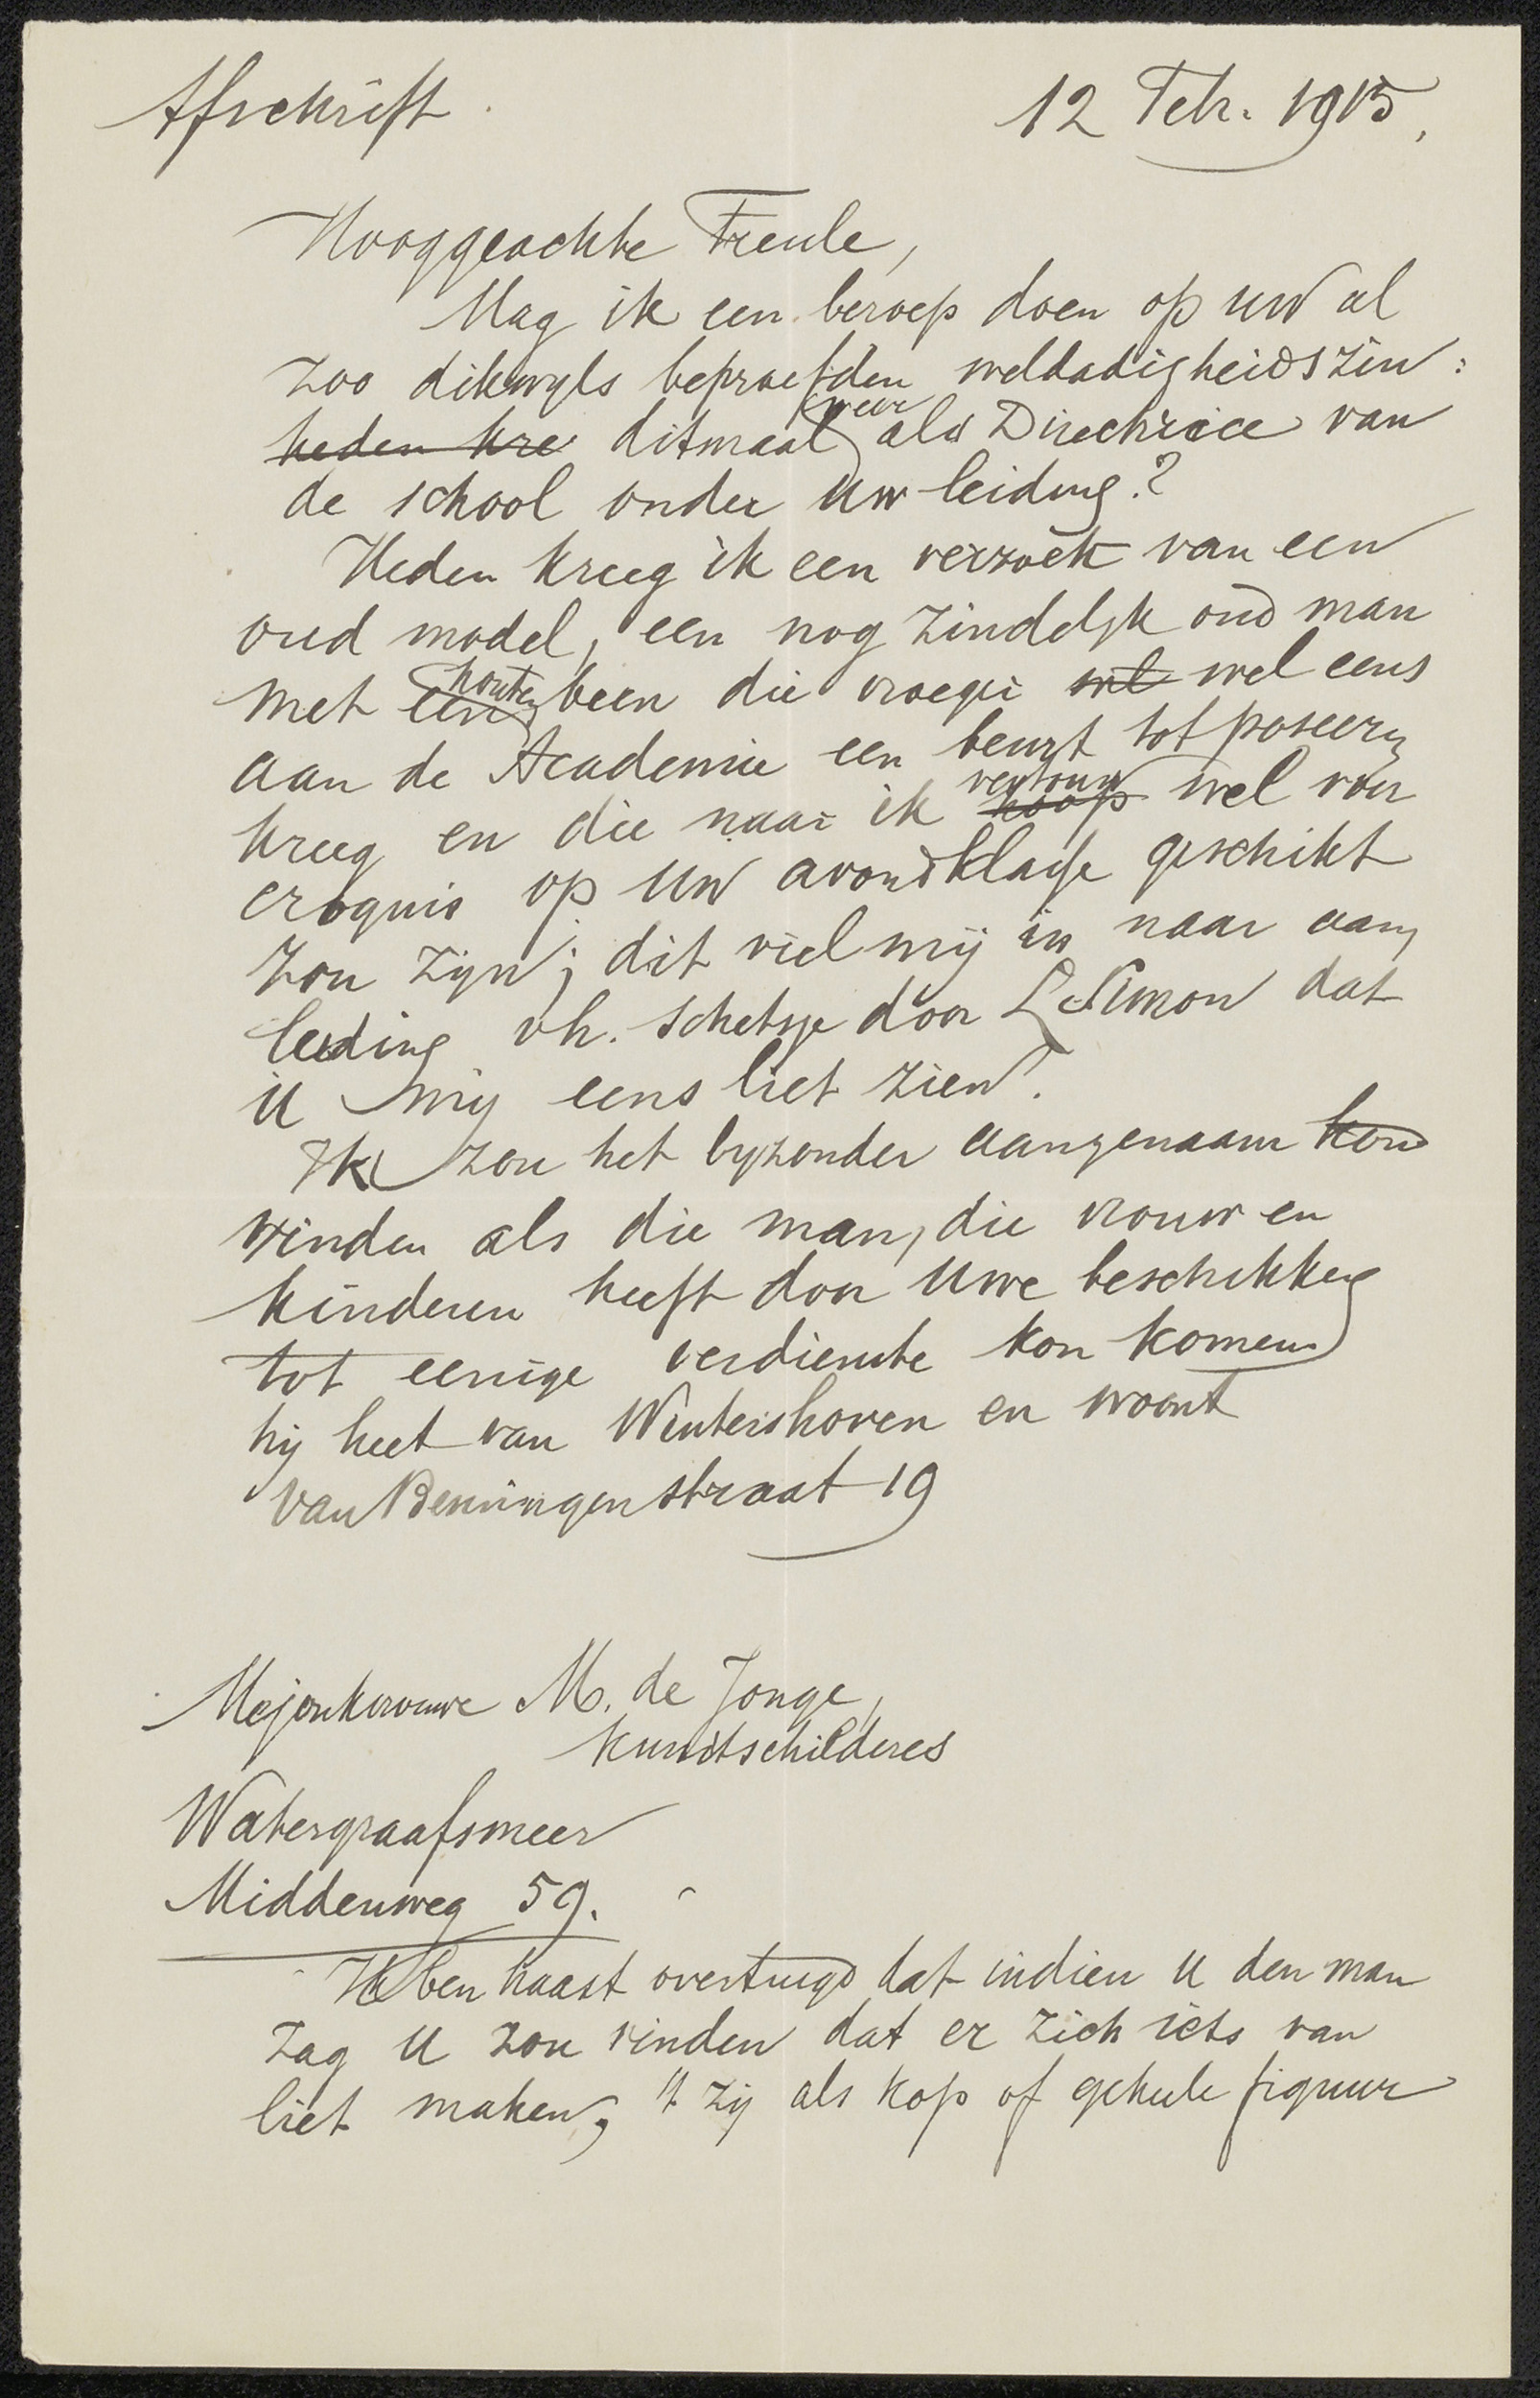 Afschrift.
12 Feb. 1915,
Hooggeachte Freule,
Mag ik een beroep doen op uw al
zoo dikwyls beproefden weldadigheidszin:
heden kre ditmaal weer als Directrice van
de school onder uw leiding?
Heden kreeg ik een verzoek van een
oud model, een nog zindelyk oud man
met een houten been die vroeger wel wel eens
aan de Academie een beurt tot poseeren
kreeg en die naar ik hoop vertrouw wel voor
croquis op uw avondklasse geschikt
zou zijn; dit viel mij in naar aan
leiding vh. schetsje door L. Simon dat
u mij eens liet zien.
Ik zou het byzonder aangenaam kon
vinden als die man, die vrouw en
kinderen heeft door uwe beschikking
tot eenige verdienste kon komen
hij heet van Wintershoven en woont
van Beuningenstraat 19
Mejonkvrouwe M. de Jonge,
kunstschilderes
Watergraafsmeer
Middenweg 59.
Ik ben haast overtuigd dat indien u den man
zag u zou vinden dat er zich iets van
liet maken, 't zij als kop of geheele figuur